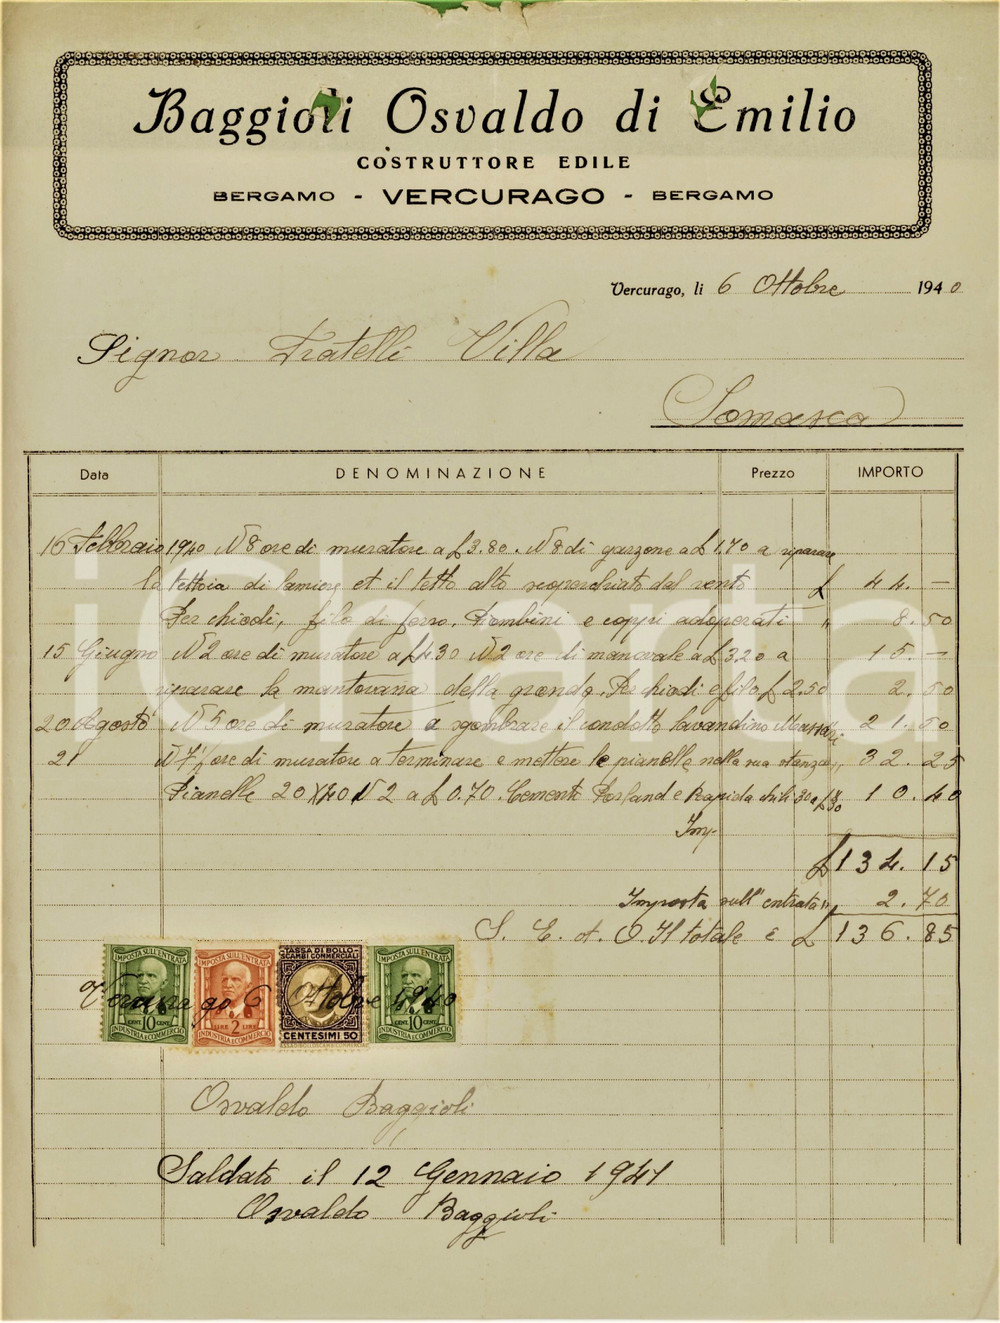 Baggioli Osvaldo di Emilio
COSTRUTTORE EDILE
BERGAMO - VERCURAGO - BERGAMO
Vercurago, li 6 Ottobre 1940
Signor Fratelli Villa
Somasca
Data DENOMINAZIONE Prezzo IMPORTO
16 Febbraio 1940 N 8 ore di muratore a £ 3.80. N 8 di garzone a £ 1.70 a riparare
la tettoia di lamiere et il tetto alto scoperchiato dal vento £ 44.—
Per chiodi, filo di ferro, Piombini e coppi adoperati " 8.50
15 Giugno N 2 ore di muratore a £ 4.30 N 2 ore di manovale a £ 3.20 a 15.—
riparare la mantovana della gronda. Per chiodi e filo £ 2.50 2.50
20 Agosto N 5 ore di muratore a sgombrare il condotto lavandino 21.50
21 N 7½ ore di muratore a terminare e mettere le pianelle nella sua stanza " 32.25
Pianelle 20 X 40 N 2 a £ 0.70. Cemento Portland e Rapida chili 30 a £ 10.40
Imp.
£ 134.15
Imposta sull'entrata " 2.70
S. E. A. O. Il totale è £ 136.85
IMPOSTA SULL'ENTRATA IMPOSTA SULL'ENTRATA TASSA DI BOLLO SCAMBI COMMERCIALI IMPOSTA SULL'ENTRATA
Vercurago 6 Ottobre 1940
CENT. 10 CENT. LIRE 2 LIRE CENTESIMI 50 CENT. 10 CENT.
INDUSTRIA E COMMERCIO INDUSTRIA E COMMERCIO INDUSTRIA E COMMERCIO
Osvaldo Baggioli
Saldato il 12 Gennaio 1941
Osvaldo Baggioli
iCharta